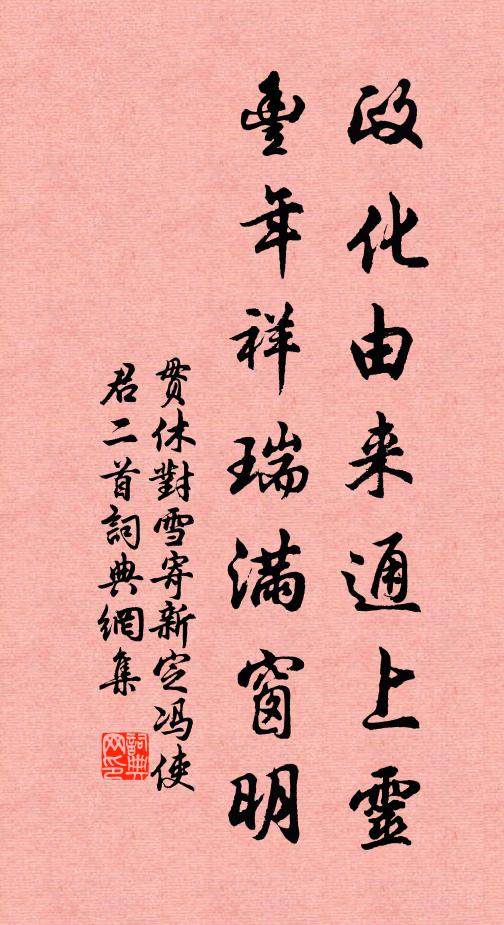 政化由来通上靈
豐年祥瑞滿窗明
貫休對雪寄新定冯使
君二首詞典網集
詞典网印